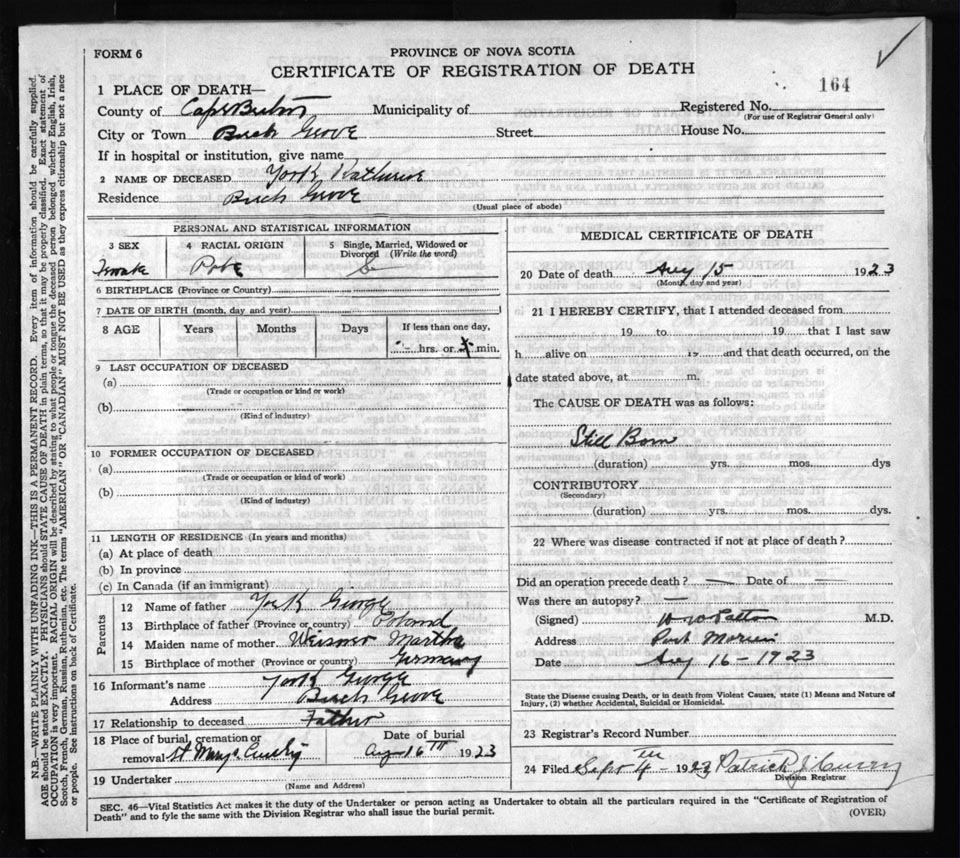 FORM 6
PROVINCE OF NOVA SCOTIA
CERTIFICATE OF REGISTRATION OF DEATH
164
1 PLACE OF DEATH—
County of Cape Breton Municipality of Registered No.
(For use of Registrar General only)
City or Town Birch Grove Street House No.
If in hospital or institution, give name
2 NAME OF DECEASED York Katherine
Residence Birch Grove
(Usual place of abode)
PERSONAL AND STATISTICAL INFORMATION
3 SEX 4 RACIAL ORIGIN 5 Single, Married, Widowed or Divorced (Write the word)
Female Pole S
6 BIRTHPLACE (Province or Country)
7 DATE OF BIRTH (month, day and year)
8 AGE Years Months Days If less than one day,
hrs. or min.
9 LAST OCCUPATION OF DECEASED
(a)
(Trade or occupation or kind or work)
(b)
(Kind of industry)
10 FORMER OCCUPATION OF DECEASED
(a)
(Trade or occupation or kind of work)
(b)
(Kind of industry)
11 LENGTH OF RESIDENCE (In years and months)
(a) At place of death
(b) In province
(c) In Canada (if an immigrant)
Parents
12 Name of father York George
13 Birthplace of father (Province or country) Poland
14 Maiden name of mother Weisner Martha
15 Birthplace of mother (Province or country) Germany
16 Informant's name York George
Address Birch Grove
17 Relationship to deceased Father
18 Place of burial, cremation or removal St Marys Date of burial Aug 16TH 1923
19 Undertaker
(Name and Address)
MEDICAL CERTIFICATE OF DEATH
20 Date of death Aug 15 1923
(Month, day and year)
21 I HEREBY CERTIFY, that I attended deceased from
19 to 19 that I last saw
h alive on 19 and that death occurred, on the
date stated above, at m.
The CAUSE OF DEATH was as follows:
Still Born
(duration) yrs. mos. dys
CONTRIBUTORY
(Secondary)
(duration) yrs. mos. dys.
22 Where was disease contracted if not at place of death?
Did an operation precede death? — Date of —
Was there an autopsy? —
(Signed) M.D.
Address Port Morien
Date Aug 16 - 1923
State the Disease causing Death, or in death from Violent Causes, state (1) Means and Nature of
Injury, (2) whether Accidental, Suicidal or Homicidal.
23 Registrar's Record Number
24 Filed Sept 4TH - 1923 Patrick J Curry
Division Registrar
SEC. 46—Vital Statistics Act makes it the duty of the Undertaker or person acting as Undertaker to obtain all the particulars required in the "Certificate of Registration of
Death" and to fyle the same with the Division Registrar who shall issue the burial permit.
(OVER)
N.B.—WRITE PLAINLY WITH UNFADING INK—THIS IS A PERMANENT RECORD. Every item of information should be carefully supplied.
AGE should be stated EXACTLY. PHYSICIANS should STATE CAUSE OF DEATH in plain terms, so that it may be properly classified. Exact statement of
OCCUPATION is very important. RACIAL ORIGIN will be described by stating to what people or tongue the deceased person belonged whether English, Irish,
Scotch, French, German, Russian, Ruthenian, etc. The terms "AMERICAN" OR "CANADIAN" MUST NOT BE USED as they express citizenship but not a race
or people. See instructions on back of Certificate.